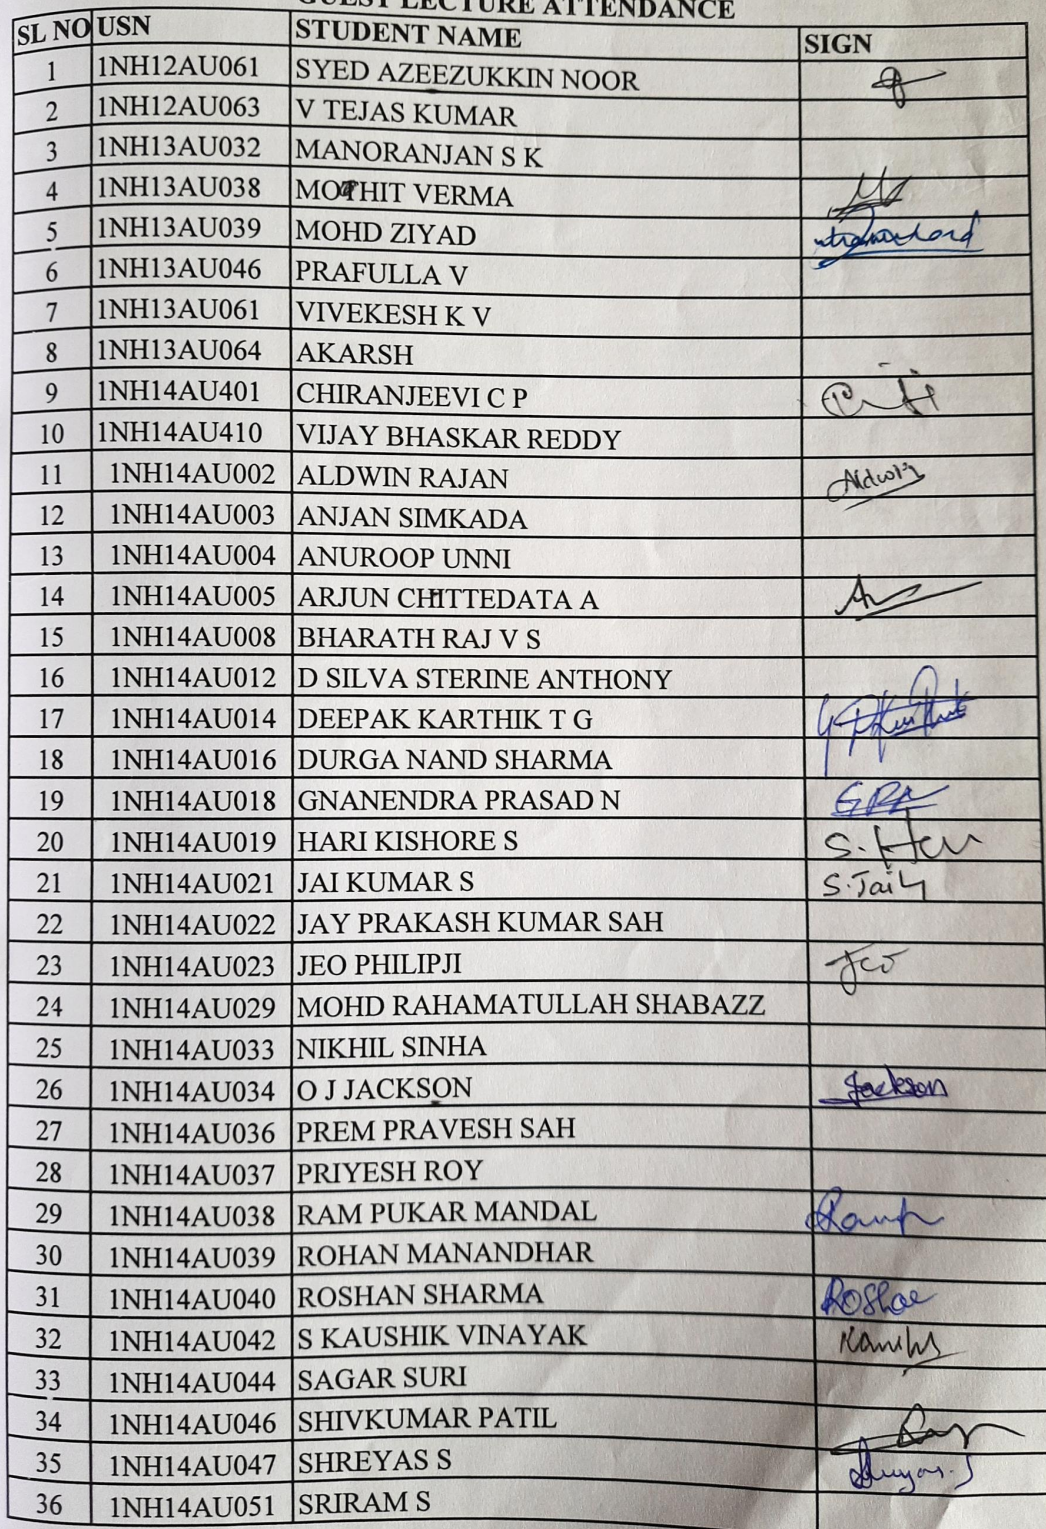 GUEST LECTURE ATTENDANCE
SL NO USN STUDENT NAME SIGN
1 1NH12AU061 SYED AZEEZUKKIN NOOR
2 1NH12AU063 V TEJAS KUMAR
3 1NH13AU032 MANORANJAN S K
4 1NH13AU038 MOTHIT VERMA
5 1NH13AU039 MOHD ZIYAD
6 1NH13AU046 PRAFULLA V
7 1NH13AU061 VIVEKESH K V
8 1NH13AU064 AKARSH
9 1NH14AU401 CHIRANJEEVI C P
10 1NH14AU410 VIJAY BHASKAR REDDY
11 1NH14AU002 ALDWIN RAJAN Aldwin
12 1NH14AU003 ANJAN SIMKADA
13 1NH14AU004 ANUROOP UNNI
14 1NH14AU005 ARJUN CHITTEDATA A
15 1NH14AU008 BHARATH RAJ V S
16 1NH14AU012 D SILVA STERINE ANTHONY
17 1NH14AU014 DEEPAK KARTHIK T G
18 1NH14AU016 DURGA NAND SHARMA
19 1NH14AU018 GNANENDRA PRASAD N
20 1NH14AU019 HARI KISHORE S
21 1NH14AU021 JAI KUMAR S
22 1NH14AU022 JAY PRAKASH KUMAR SAH
23 1NH14AU023 JEO PHILIPJI Jeo
24 1NH14AU029 MOHD RAHAMATULLAH SHABAZZ
25 1NH14AU033 NIKHIL SINHA
26 1NH14AU034 O J JACKSON Jackson
27 1NH14AU036 PREM PRAVESH SAH
28 1NH14AU037 PRIYESH ROY
29 1NH14AU038 RAM PUKAR MANDAL
30 1NH14AU039 ROHAN MANANDHAR
31 1NH14AU040 ROSHAN SHARMA
32 1NH14AU042 S KAUSHIK VINAYAK
33 1NH14AU044 SAGAR SURI
34 1NH14AU046 SHIVKUMAR PATIL
35 1NH14AU047 SHREYAS S
36 1NH14AU051 SRIRAM S